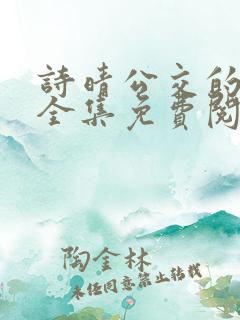 詩晴公交的
全集免費閱
陶金林
未经同意禁止转载